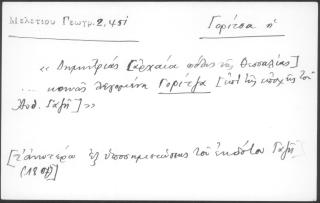 Μελετίου Γεωγρ. 2, 451
Γορίτσα ἡ
« Δημητριάς [ἀρχαία πόλις τῆς Θεσσαλίας]
... κοινῶς λεγομένη Γορίτζα [ἐπὶ τῆς ἐποχῆς τοῦ
Ἀνθ. Γαζῆ] »
[τ' ἀνωτέρω ἐξ ὑποσημειώσεως τοῦ ἐκδότου Γαζῆ
(1807)]